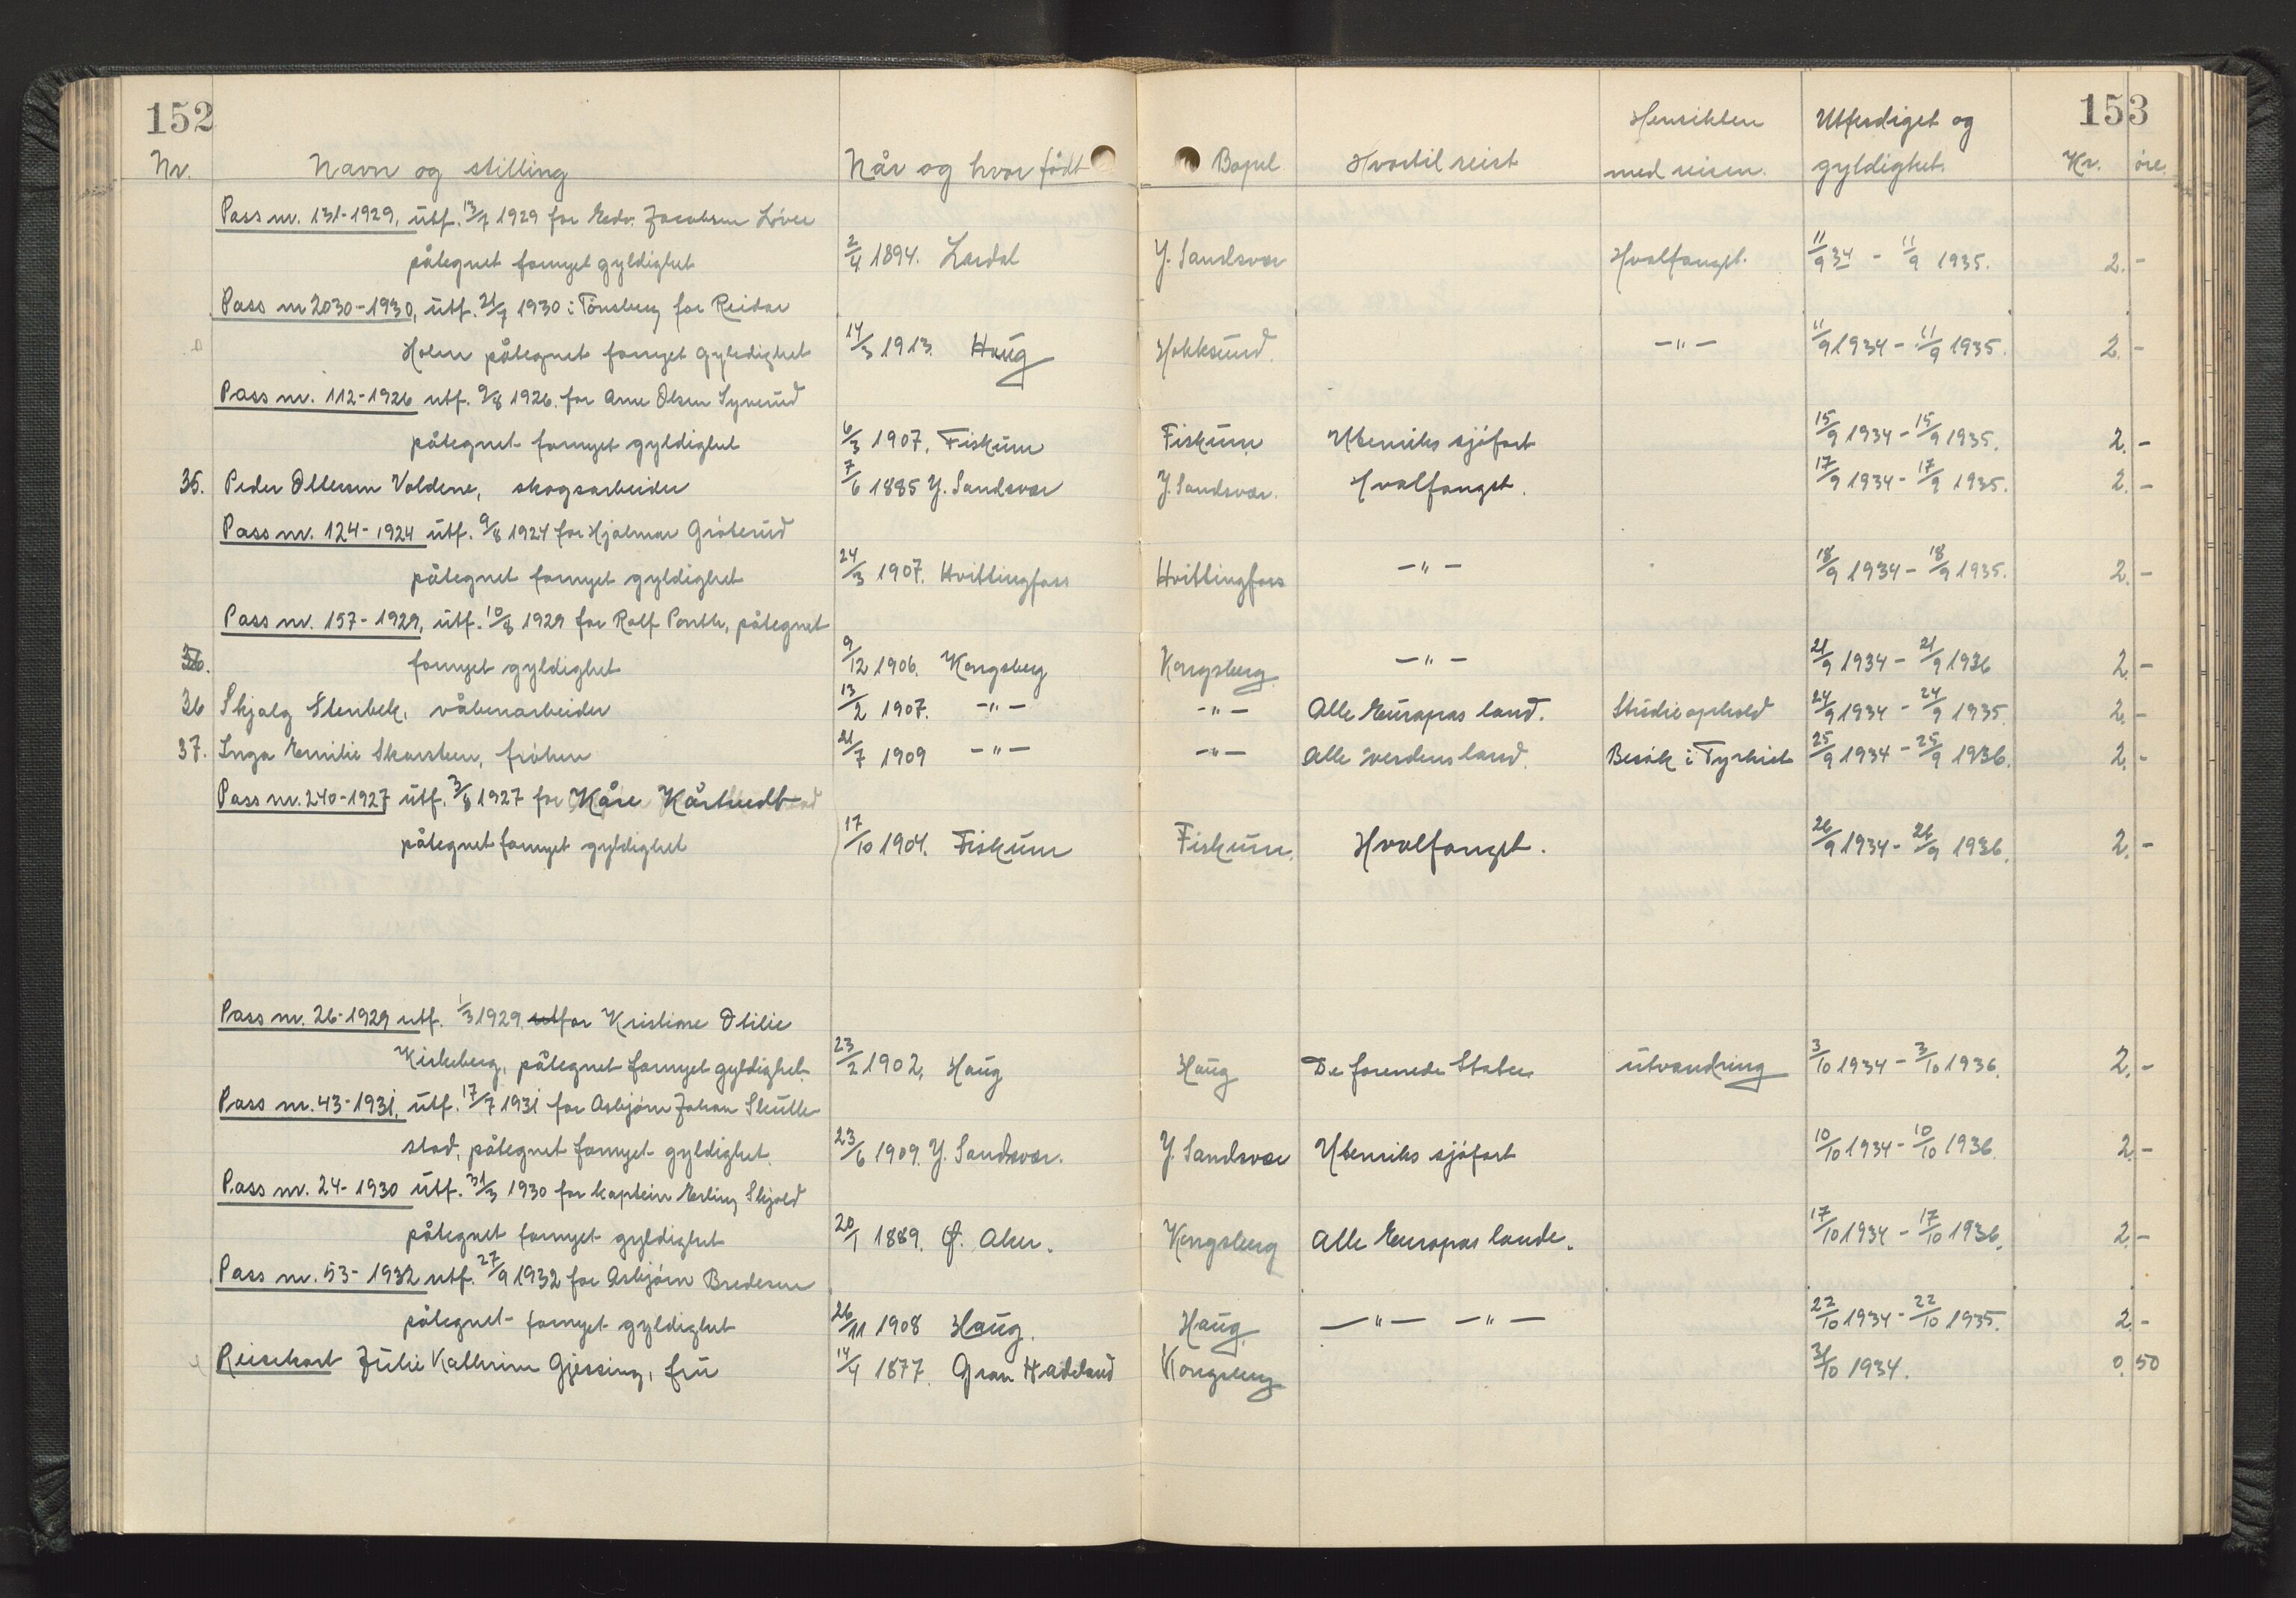 152
153
Hensikten Utferdiget og
Nr. Navn og stilling Når og hvor født Bopel Hvortil reist med reisen. gyldighet. Kr. øre.
Pass nr. 131-1929, utf. 13/7 1929 for Edv. Jacobsen Löver
påtegnet fornyet gyldighet 2/4 1894. Lardal Y. Sandsvær Hvalfangst. 11/9 34 - 11/9 1935. 2. -
Pass nr 2030-1930, utf. 21/7 1930 i Tönsberg for Reidar
Holm påtegnet fornyet gyldighet 14/3 1913. Haug Hokksund. -"- 11/9 1934 - 11/9 1935. 2. -
Pass nr. 112-1926 utf. 9/8 1926. for Arne Olsen Syverud
påtegnet fornyet gyldighet 6/3 1907. Fiskum Fiskum Utenriks sjöfart 15/9 1934 - 15/9 1935. 2. -
35. Peder Ottersen Voldene, skogsarbeider 7/6 1885 Y. Sandsvær Y. Sandsvær. Hvalfangst. 17/9 1934 - 17/9 1935. 2. -
Pass nr. 124-1924 utf. 9/8 1924 for Hjalmar Gröterud
påtegnet fornyet gyldighet 24/3 1907. Hvittingfoss Hvittingfoss -"- 18/9 1934 - 18/9 1935. 2. -
Pass nr. 157-1929, utf. 10/8 1929 for Rolf , påtegnet
36. fornyet gyldighet 9/12 1906. Kongsberg Kongsberg -"- 21/9 1934 - 21/9 1936 2. -
36 Skjalg Stenbek, våbenarbeider 13/2 1907. -"- -"- Alle Europas land. Studieophold 24/9 1934 - 24/9 1935. 2. -
37. Inga Emilie Skarsteen, fröken 21/7 1909 -"- -"- Alle verdens land. Besök i Tyrkiet 25/9 1934 - 25/9 1936. 2. -
Pass nr. 240-1927 utf. 3/8 1927 for Kåre Kårtvedt
påtegnet fornyet gyldighet 17/10 1904. Fiskum Fiskum. Hvalfangst. 26/9 1934 - 26/9 1936. 2. -
Pass nr. 26-1929 utf. 1/3 1929. utfor Kristiane Otilie
Kirkeberg, påtegnet fornyet gyldighet. 23/2 1902, Haug Haug De forenede Stater utvandring 3/10 1934 - 3/10 1936. 2. -
Pass nr. 43-1931, utf. 17/7 1931 for Asbjörn Johan Skulle-
stad, påtegnet fornyet gyldighet. 23/6 1909. Y. Sandsvær. Y. Sandsvær Utenriks sjöfart 10/10 1934 - 10/10 1936. 2. -
Pass nr. 24-1930 utf. 31/3 1930 for kaptein Erling Skjold
påtegnet fornyet gyldighet 20/1 1889. Ø. Aker. Kongsberg Alle Europas lande. 17/10 1934 - 17/10 1936. 2. -
Pass nr. 53-1932 utf. 27/9 1932 for Asbjörn Bredesen
påtegnet fornyet gyldighet 26/11 1908 Haug. Haug. -"- -"- 22/10 1934 - 22/10 1935. 2. -
Reisekort Julie Kathrine Gjessing, fru 14/4 1877. Gran Hadeland Kongsberg 31/10 1934. 0. 50